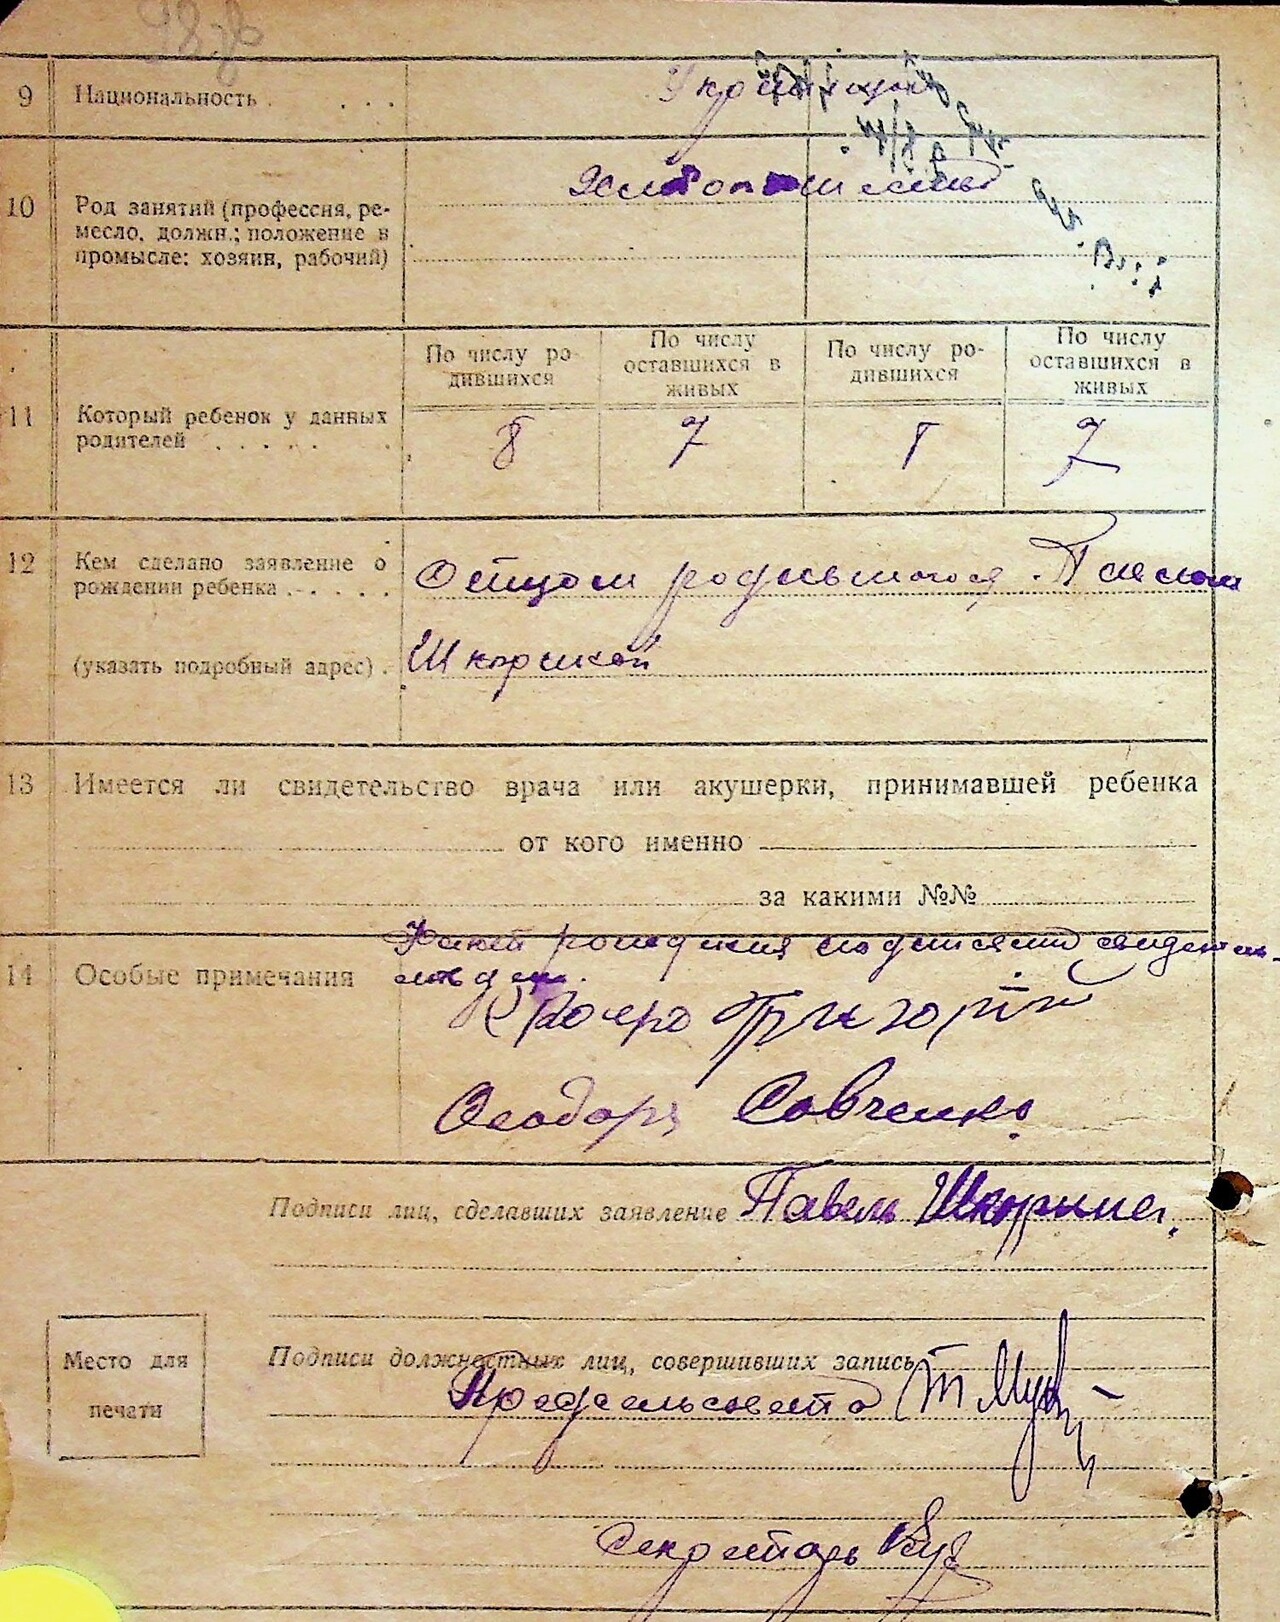 9 Национальность . . . . Украинцы
10 Род занятий (профессия, ре-
месло, должн.; положение в
промысле: хозяин, рабочий)
Хлебопашество
11 Который ребенок у данных
родителей . . . . .
По числу ро-
дившихся
По числу
оставшихся в
живых
По числу ро-
дившихся
По числу
оставшихся в
живых
8 7 7
12 Кем сделано заявление о
рождении ребенка . . . . .
(указать подробный адрес) .
Отцом родившагося Павлом
13 Имеется ли свидетельство врача или акушерки, принимавшей ребенка
от кого именно
за какими №№
14 Особые примечания
Григорій
Феодора Савченко
Подписи лиц, сделавших заявление Павел
Место для
печати
Подписи должностных лиц, совершивших запись
Предсельсовета
Секретарь